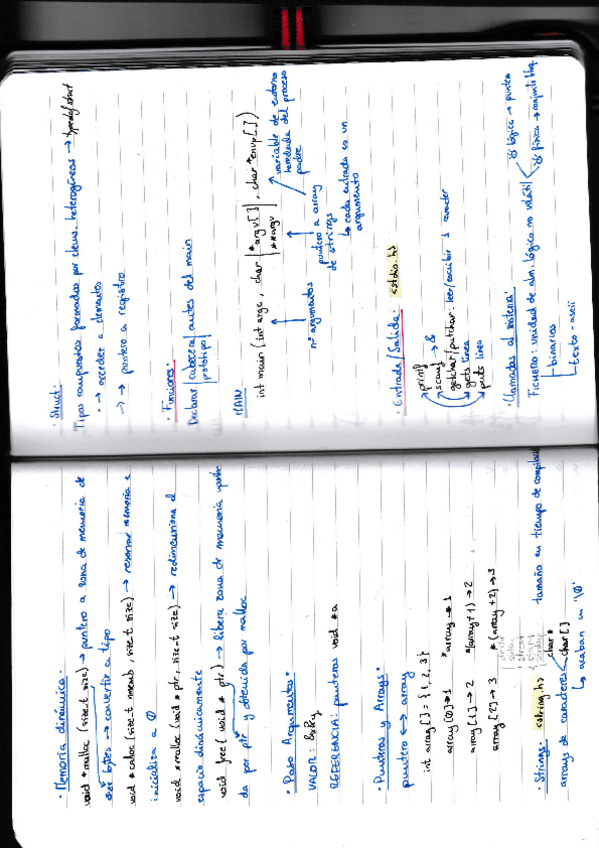 · Memoria dinámica ·
void *malloc (size_t size) → puntero a zona de memoria de
size bytes → convertir a tipo
void * calloc (size_t nmemb, size_t size) → reservar memoria e
inicializa a 0
void *realloc (void * ptr, size_t size) → redimensiona el
espacio dinámicamente
void free (void * ptr) → libera zona de memoria
da por ptr y obtenida por malloc
· Paso Argumentos ·
VALOR: &x &y
REFERENCIA: punteros void *a
· Punteros y Arrays ·
puntero ↔ array
int array [] = {1, 2, 3}
array [0] → 1 *array → 1
array [1] → 2 *(array+1) → 2
array [2] → 3 *(array +2) → 3
· Strings · <string.h>
tamaño en tiempo de
arrays de caracteres char *
char []
↳ acaban en '\0'
· Struct ·
Tipos compuestos formados por elems. heterogéneos → typedef struct
· → acceder a elementos
→ → puntero a registro
· Funciones ·
Declarar cabecera antes del main
prototipo
MAIN
int main (int argc, char *argv[], char *envp[])
**argv
nº argumentos
puntero a array
de strings
↳ cada entrada es un
argumento
variable de entorno
heredada del proceso
padre
· Entrada/Salida · <stdio.h>
printf
scanf → &
getchar/putchar: leer/escribir 1 caracter
gets línea
puts línea
· Llamadas al sistema ·
FICHERO: unidad de alm. lógico no volátil
lógica → puntero
física → conjunto
binarios
texto - ascii